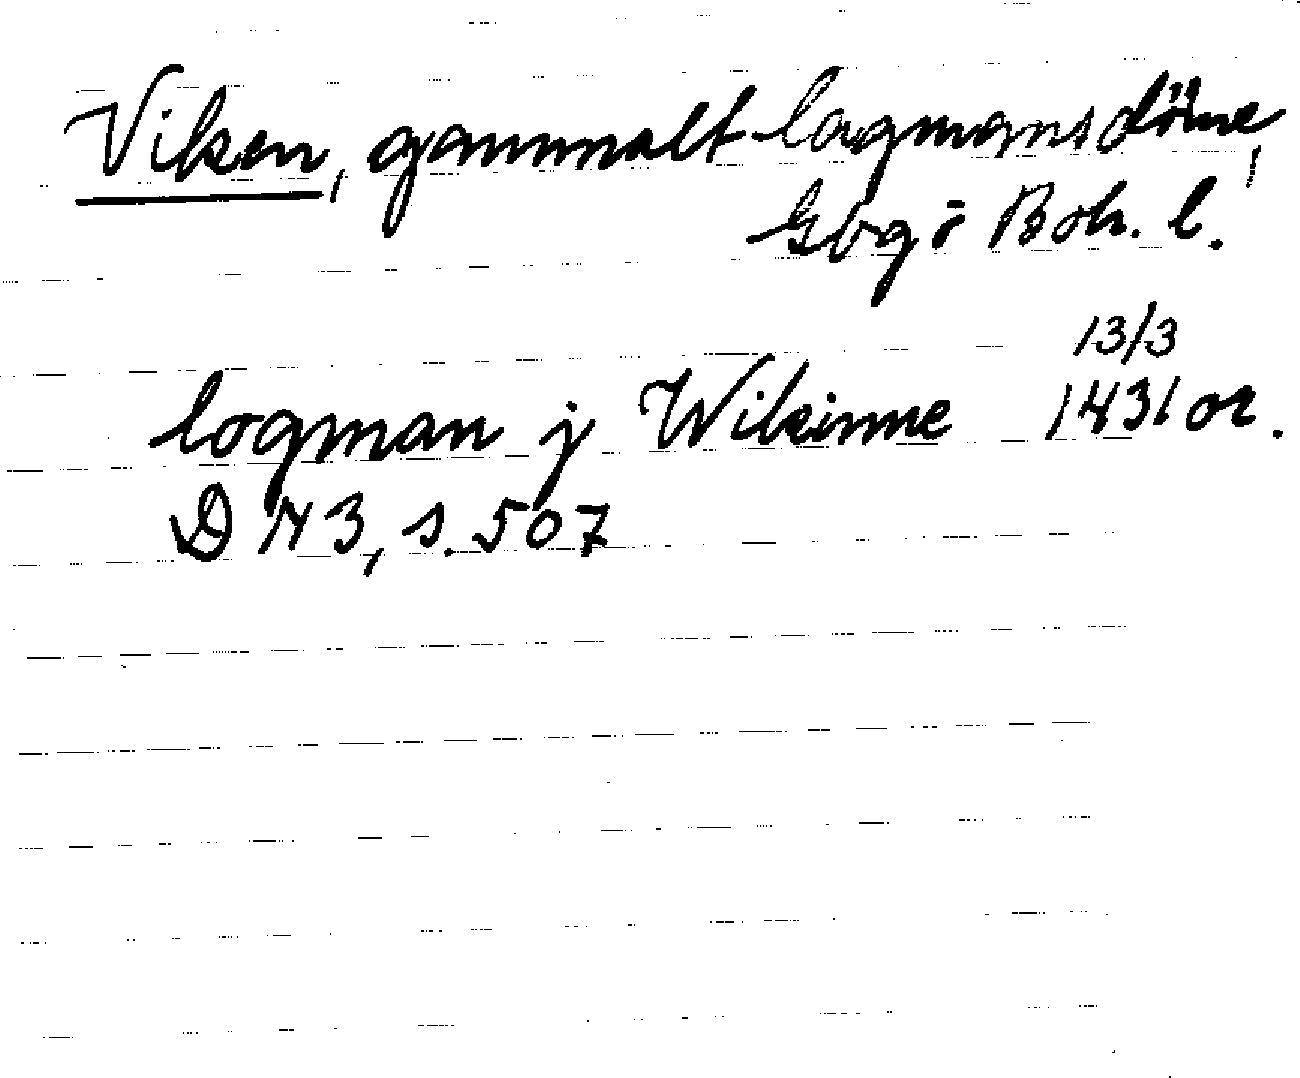 Viken, gammalt lagmansdöme,
Gbg o Boh. l.
13/3
logman j Wikinne 1431 or.
DN 3, s. 507